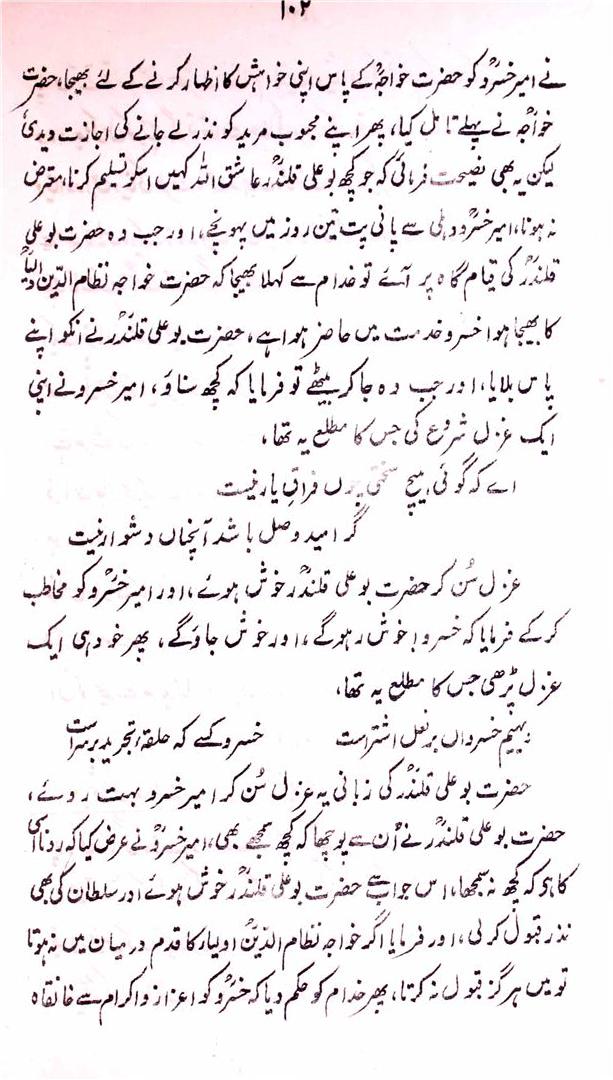 ۱۰۲
نے امیر خسروؒ کو حضرت خواجہؒ کے پاس اپنی خواہش کا اظہار کرنے کے لئے بھیجا، حضرت
خواجہ نے پہلے تامل کیا، پھر اپنے محبوب مرید کو نذر لے جانے کی اجازت دیدی
لیکن یہ بھی نصیحت فرمائی کہ جو کچھ بو علی قلندرؒ عاشق اللہ کہیں اسکو تسلیم کرنا، معترض
نہ ہونا، امیر خسروؒ دہلی سے پانی پت تین روز میں پہونچے، اور جب وہ حضرت بو علی
قلندرؒ کی قیام گاہ پر آئے تو خدام سے کہلا بھیجا کہ حضرت خواجہ نظام الدین اولیاؒ
کا بھیجا ہوا خسرو خدمت میں حاضر ہوا ہے، حضرت بو علی قلندرؒ نے انکو اپنے
پاس بلایا، اور جب وہ جا کر بیٹھے تو فرمایا کہ کچھ سناؤ، امیر خسرو نے اپنی
ایک غزل شروع کی جس کا مطلع یہ تھا،
اے کہ گوئی ہیچ سختی چوں فراق یار نیست
گر امید وصل باشد آنچناں دشوار نیست
غزل سُن کر حضرت بو علی قلندرؒ خوش ہوئے، اور امیر خسروؒ کو مخاطب
کر کے فرمایا کہ خسرو! خوش رہو گے، اور خوش جاؤ گے، پھر خود ہی ایک
غزل پڑھی جس کا مطلع یہ تھا،
دیہیم خسرواں بر نعل اشتر است خسرو کسے کہ حلقۂ تجرید بر سر است
حضرت بو علی قلندرؒ کی زبانی یہ غزل سُن کر امیر خسرو بہت روئے،
حضرت بو علی قلندرؒ نے اُن سے پوچھا کہ کچھ سمجھے بھی، امیر خسروؒ نے عرض کیا کہ رونا اسی
کا ہو کہ کچھ نہ سمجھا، اس جواب سے حضرت بو علی قلندرؒ خوش ہوئے اور سلطان کی بھی
نذر قبول کر لی، اور فرمایا اگر خواجہ نظام الدینؒ اولیار کا قدم درمیان میں نہ ہوتا
تو میں ہر گز قبول نہ کرتا، پھر خدام کو حکم دیا کہ خسروؒ کو اعزاز و اکرام سے خانقاہ